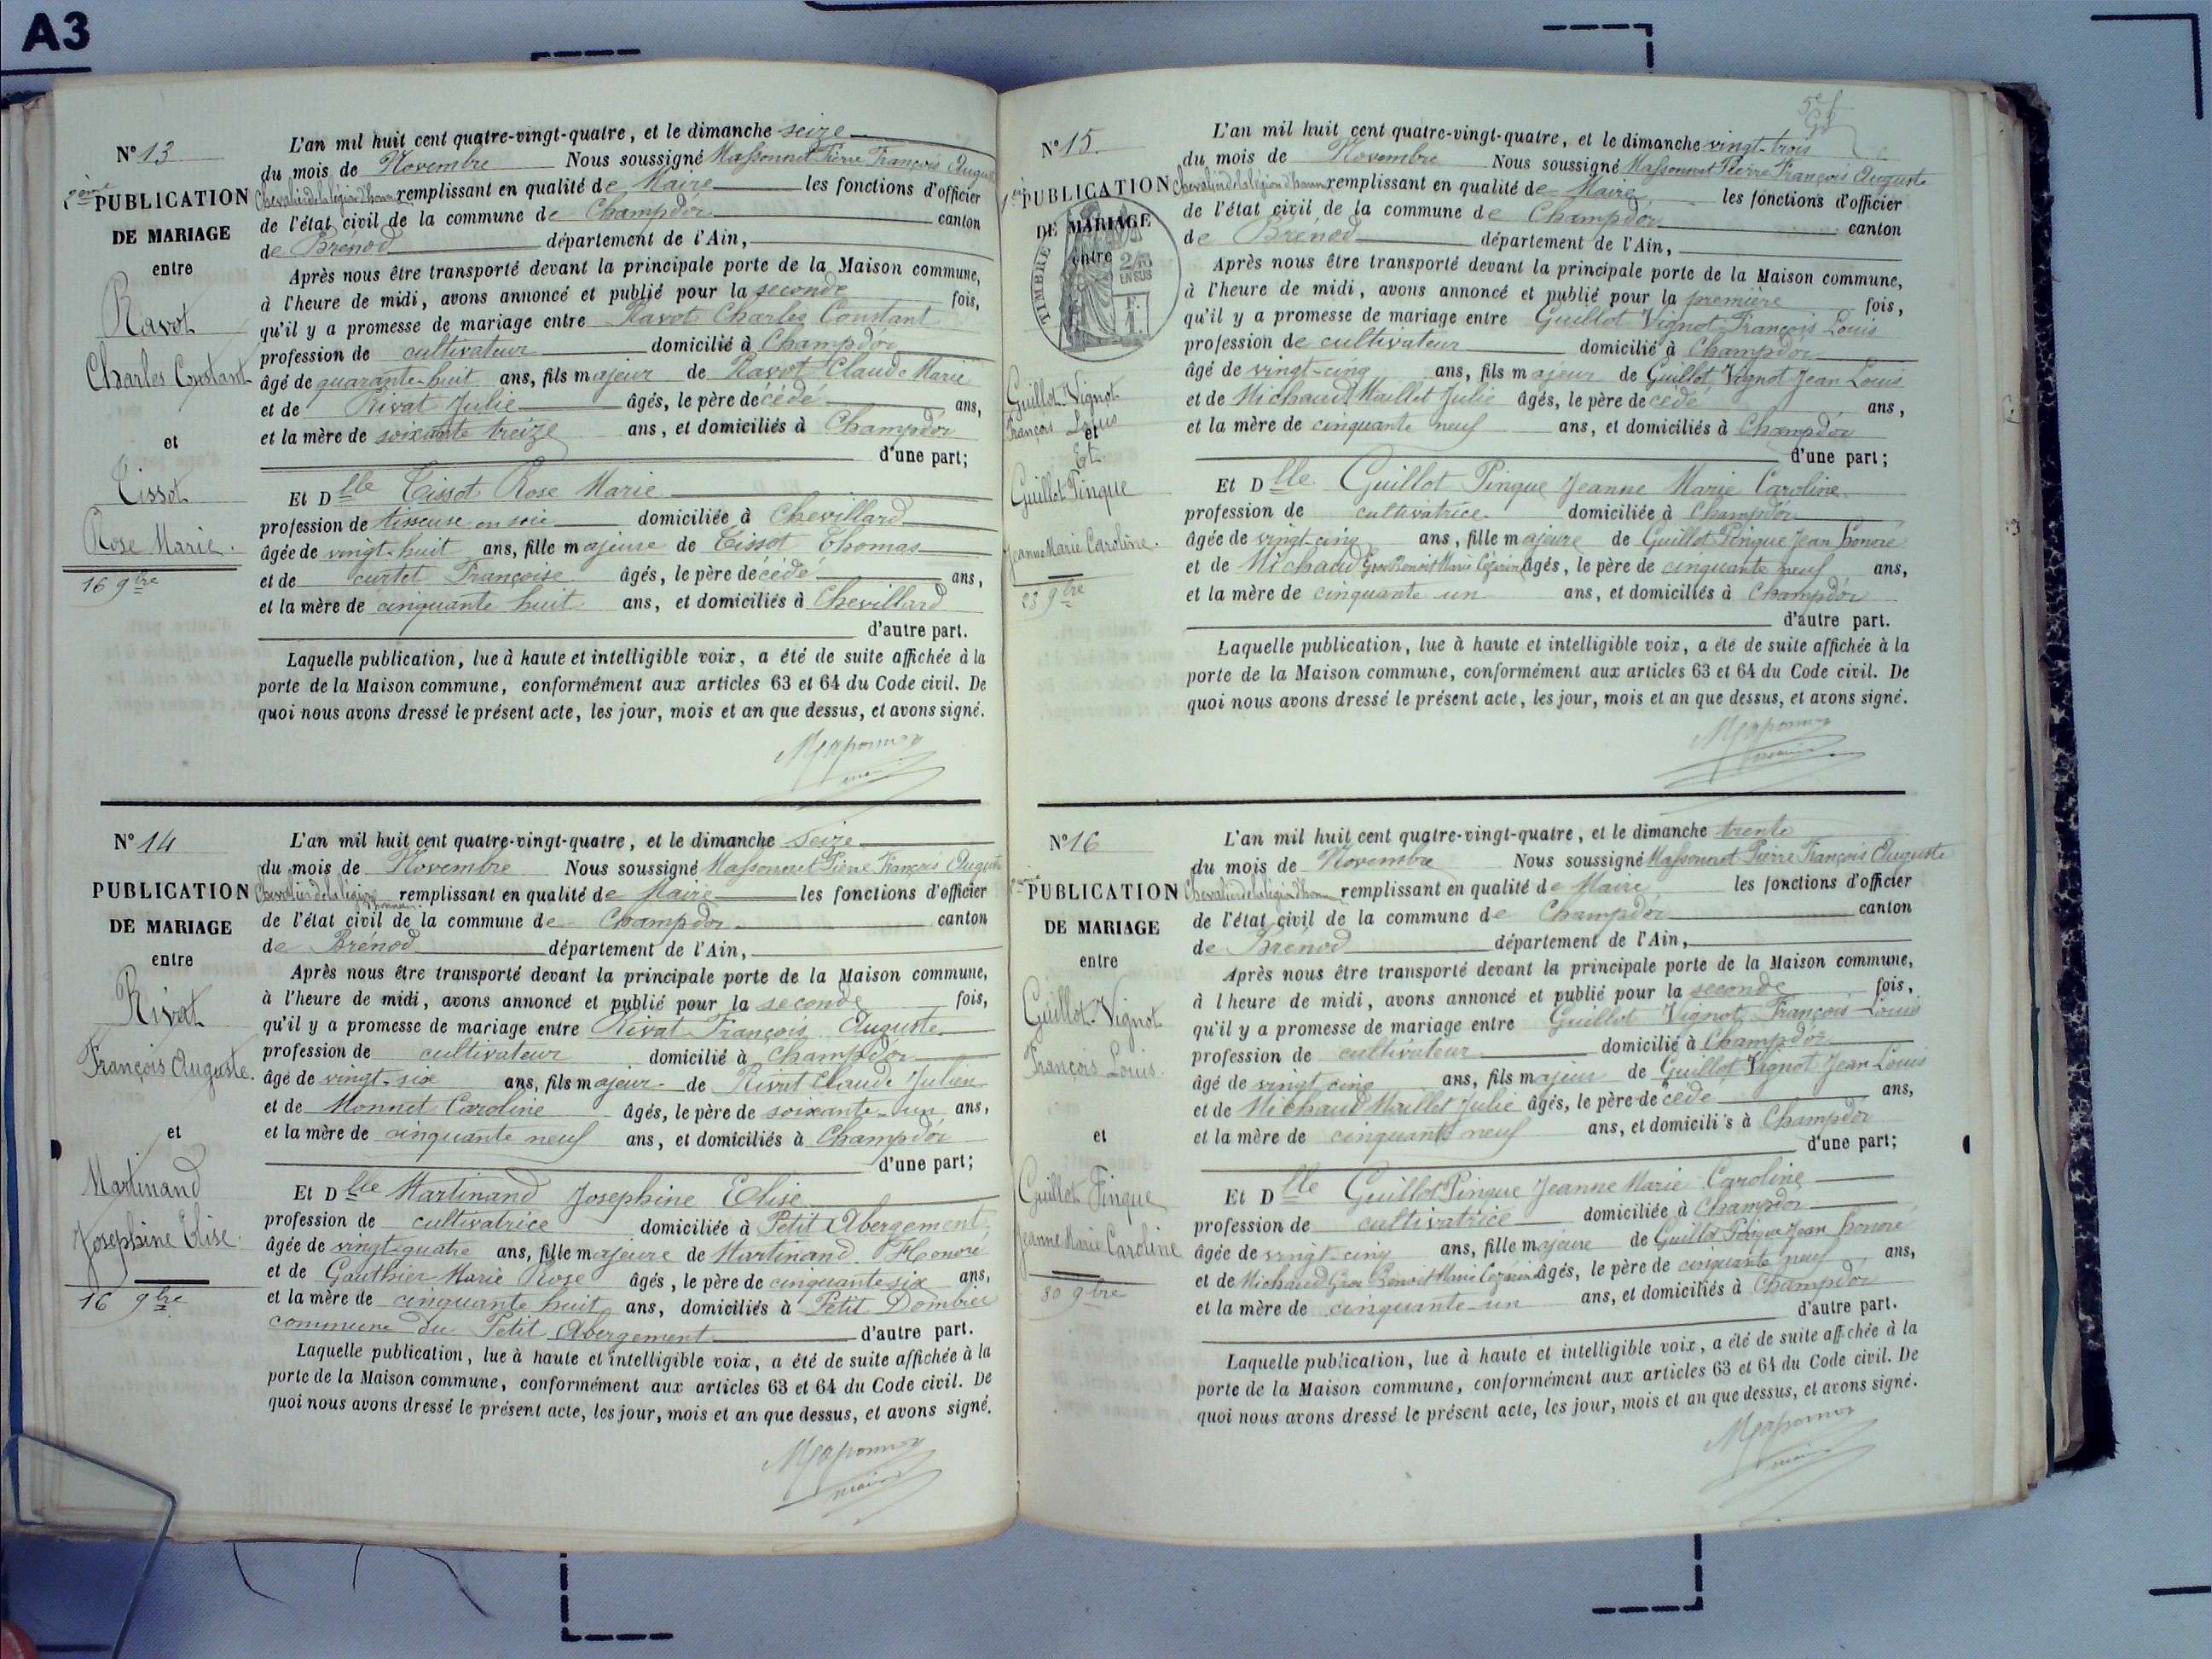 A3
N° 13
2ème PUBLICATION
DE MARIAGE
entre
Ravot
Charles Constant
et
Tissot
Rose Marie.
16 9bre
L'an mil huit cent quatre-vingt-quatre, et le dimanche seize
du mois de Novembre Nous soussigné Massonnet Pierre François Auguste
Chevalier de la légion d'honneur remplissant en qualité de Maire les fonctions d'officier
de l'état civil de la commune de Champdor canton
de Brénod département de l'Ain,
Après nous être transporté devant la principale porte de la Maison commune,
à l'heure de midi, avons annoncé et publié pour la seconde fois,
qu'il y a promesse de mariage entre Ravot Charles Constant
profession de cultivateur domicilié à Champdor
âgé de quarante-huit ans, fils majeur de Ravot Claude Marie
et de Rivat Julie âgés, le père décédé ans,
et la mère de soixante treize ans, et domiciliés à Champdor
d'une part;
Et Dlle Tissot Rose Marie
profession de tisseuse en soie domiciliée à Chevillard
âgée de vingt-huit ans, fille majeure de Tissot Thomas
et de curtet Françoise âgés, le père décédé ans,
et la mère de cinquante huit ans, et domiciliés à Chevillard
d'autre part.
Laquelle publication, lue à haute et intelligible voix, a été de suite affichée à la
porte de la Maison commune, conformément aux articles 63 et 64 du Code civil. De
quoi nous avons dressé le présent acte, les jour, mois et an que dessus, et avons signé.
Massonnet
N° 14
PUBLICATION
DE MARIAGE
entre
Rivat
François Auguste.
et
Martinand
Josephine Elise.
16 9bre
L'an mil huit cent quatre-vingt-quatre, et le dimanche seize
du mois de Novembre Nous soussigné Massonnet Pierre François Auguste
Chevalier de la légion d'honneur remplissant en qualité de Maire les fonctions d'officier
de l'état civil de la commune de Champdor canton
de Brénod département de l'Ain,
Après nous être transporté devant la principale porte de la Maison commune,
à l'heure de midi, avons annoncé et publié pour la seconde fois,
qu'il y a promesse de mariage entre Rivat François Auguste
profession de cultivateur domicilié à Champdor
âgé de vingt-six ans, fils majeur de Rivat Claude Julien
et de Monnet Caroline âgés, le père de soixante-un ans,
et la mère de cinquante neuf ans, et domiciliés à Champdor
d'une part;
Et Dlle Martinand Josephine Elise
profession de cultivatrice domiciliée à Petit Abergement
âgée de vingt-quatre ans, fille majeure de Martinand Honoré
et de Gauthier Marie Rose âgés, le père de cinquante six ans,
et la mère de cinquante huit ans, domiciliés à Petit Dombier
commune du Petit Abergement d'autre part.
Laquelle publication, lue à haute et intelligible voix, a été de suite affichée à la
porte de la Maison commune, conformément aux articles 63 et 64 du Code civil. De
quoi nous avons dressé le présent acte, les jour, mois et an que dessus, et avons signé.
Massonnet
maire
5e f
N° 15.
1ère PUBLICATION
DE MARIAGE
entre
TIMBRE
2/10
EN SUS
F.
1.
Guillot-Vignot
François Louis
et
Et
Guillot Pingue
Jeanne Marie Caroline.
23 9bre
L'an mil huit cent quatre-vingt-quatre, et le dimanche vingt-trois
du mois de Novembre Nous soussigné Massonnet Pierre François Auguste
Chevalier de la légion d'honneur remplissant en qualité de Maire les fonctions d'officier
de l'état civil de la commune de Champdor canton
de Brenod département de l'Ain,
Après nous être transporté devant la principale porte de la Maison commune,
à l'heure de midi, avons annoncé et publié pour la première fois,
qu'il y a promesse de mariage entre Guillot Vignot François Louis
profession de cultivateur domicilié à Champdor
âgé de vingt-cinq ans, fils majeur de Guillot Vignot Jean Louis
et de Michaud Maillet Julie âgés, le père decédé ans,
et la mère de cinquante neuf ans, et domiciliés à Champdor
d'une part;
Et Dlle Guillot Pingue Jeanne Marie Caroline
profession de cultivatrice domiciliée à Champdor
âgée de vingt-cinq ans, fille majeure de Guillot Pingue Jean honoré
et de Michaud Gros Benoit Marie Cézarine âgés, le père de cinquante neuf ans,
et la mère de cinquante un ans, et domiciliés à Champdor
d'autre part.
Laquelle publication, lue à haute et intelligible voix, a été de suite affichée à la
porte de la Maison commune, conformément aux articles 63 et 64 du Code civil. De
quoi nous avons dressé le présent acte, les jour, mois et an que dessus, et avons signé.
Massonnet
maire
N° 16
2ème PUBLICATION
DE MARIAGE
entre
Guillot-Vignot
François Louis.
et
Guillot Pingue
Jeanne Marie Caroline
30 9bre
L'an mil huit cent quatre-vingt-quatre, et le dimanche trente
du mois de Novembre Nous soussigné Massonnet Pierre François Auguste
Chevalier de la légion d'honneur remplissant en qualité de Maire les fonctions d'officier
de l'état civil de la commune de Champdor canton
de Brenod département de l'Ain,
Après nous être transporté devant la principale porte de la Maison commune,
à l'heure de midi, avons annoncé et publié pour la seconde fois,
qu'il y a promesse de mariage entre Guillot Vignot François Louis
profession de cultivateur domicilié à Champdor
âgé de vingt cinq ans, fils majeur de Guillot Vignot Jean Louis
et de Michaud Maillet Julie âgés, le père de cédé ans,
et la mère de cinquante neuf ans, et domicili's à Champdor
d'une part;
Et Dlle Guillot Pingue Jeanne Marie Caroline
profession de cultivatrice domiciliée à Champdor
âgée de vingt-cinq ans, fille majeure de Guillot Pingue Jean honoré
et de Michaud Gros Benoit Marie Cezarine âgés, le père de cinquante neuf ans,
et la mère de cinquante-un ans, et domiciliés à Champdor
d'autre part.
Laquelle publication, lue à haute et intelligible voix, a été de suite affichée à la
porte de la Maison commune, conformément aux articles 63 et 64 du Code civil. De
quoi nous avons dressé le présent acte, les jour, mois et an que dessus, et avons signé.
Massonnet
maire